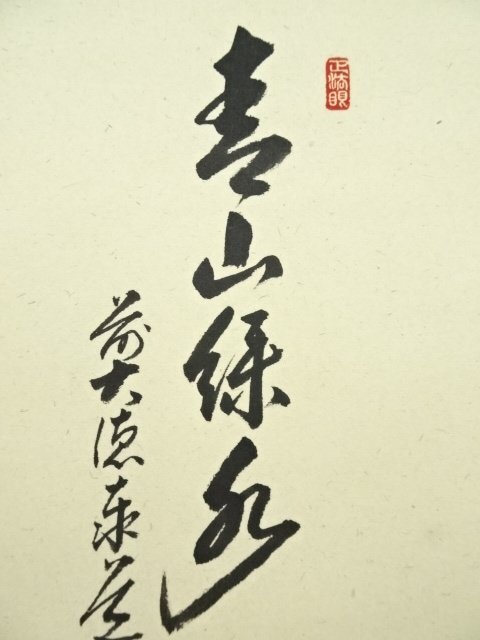 正法眼
青山緑水
前大徳泰道